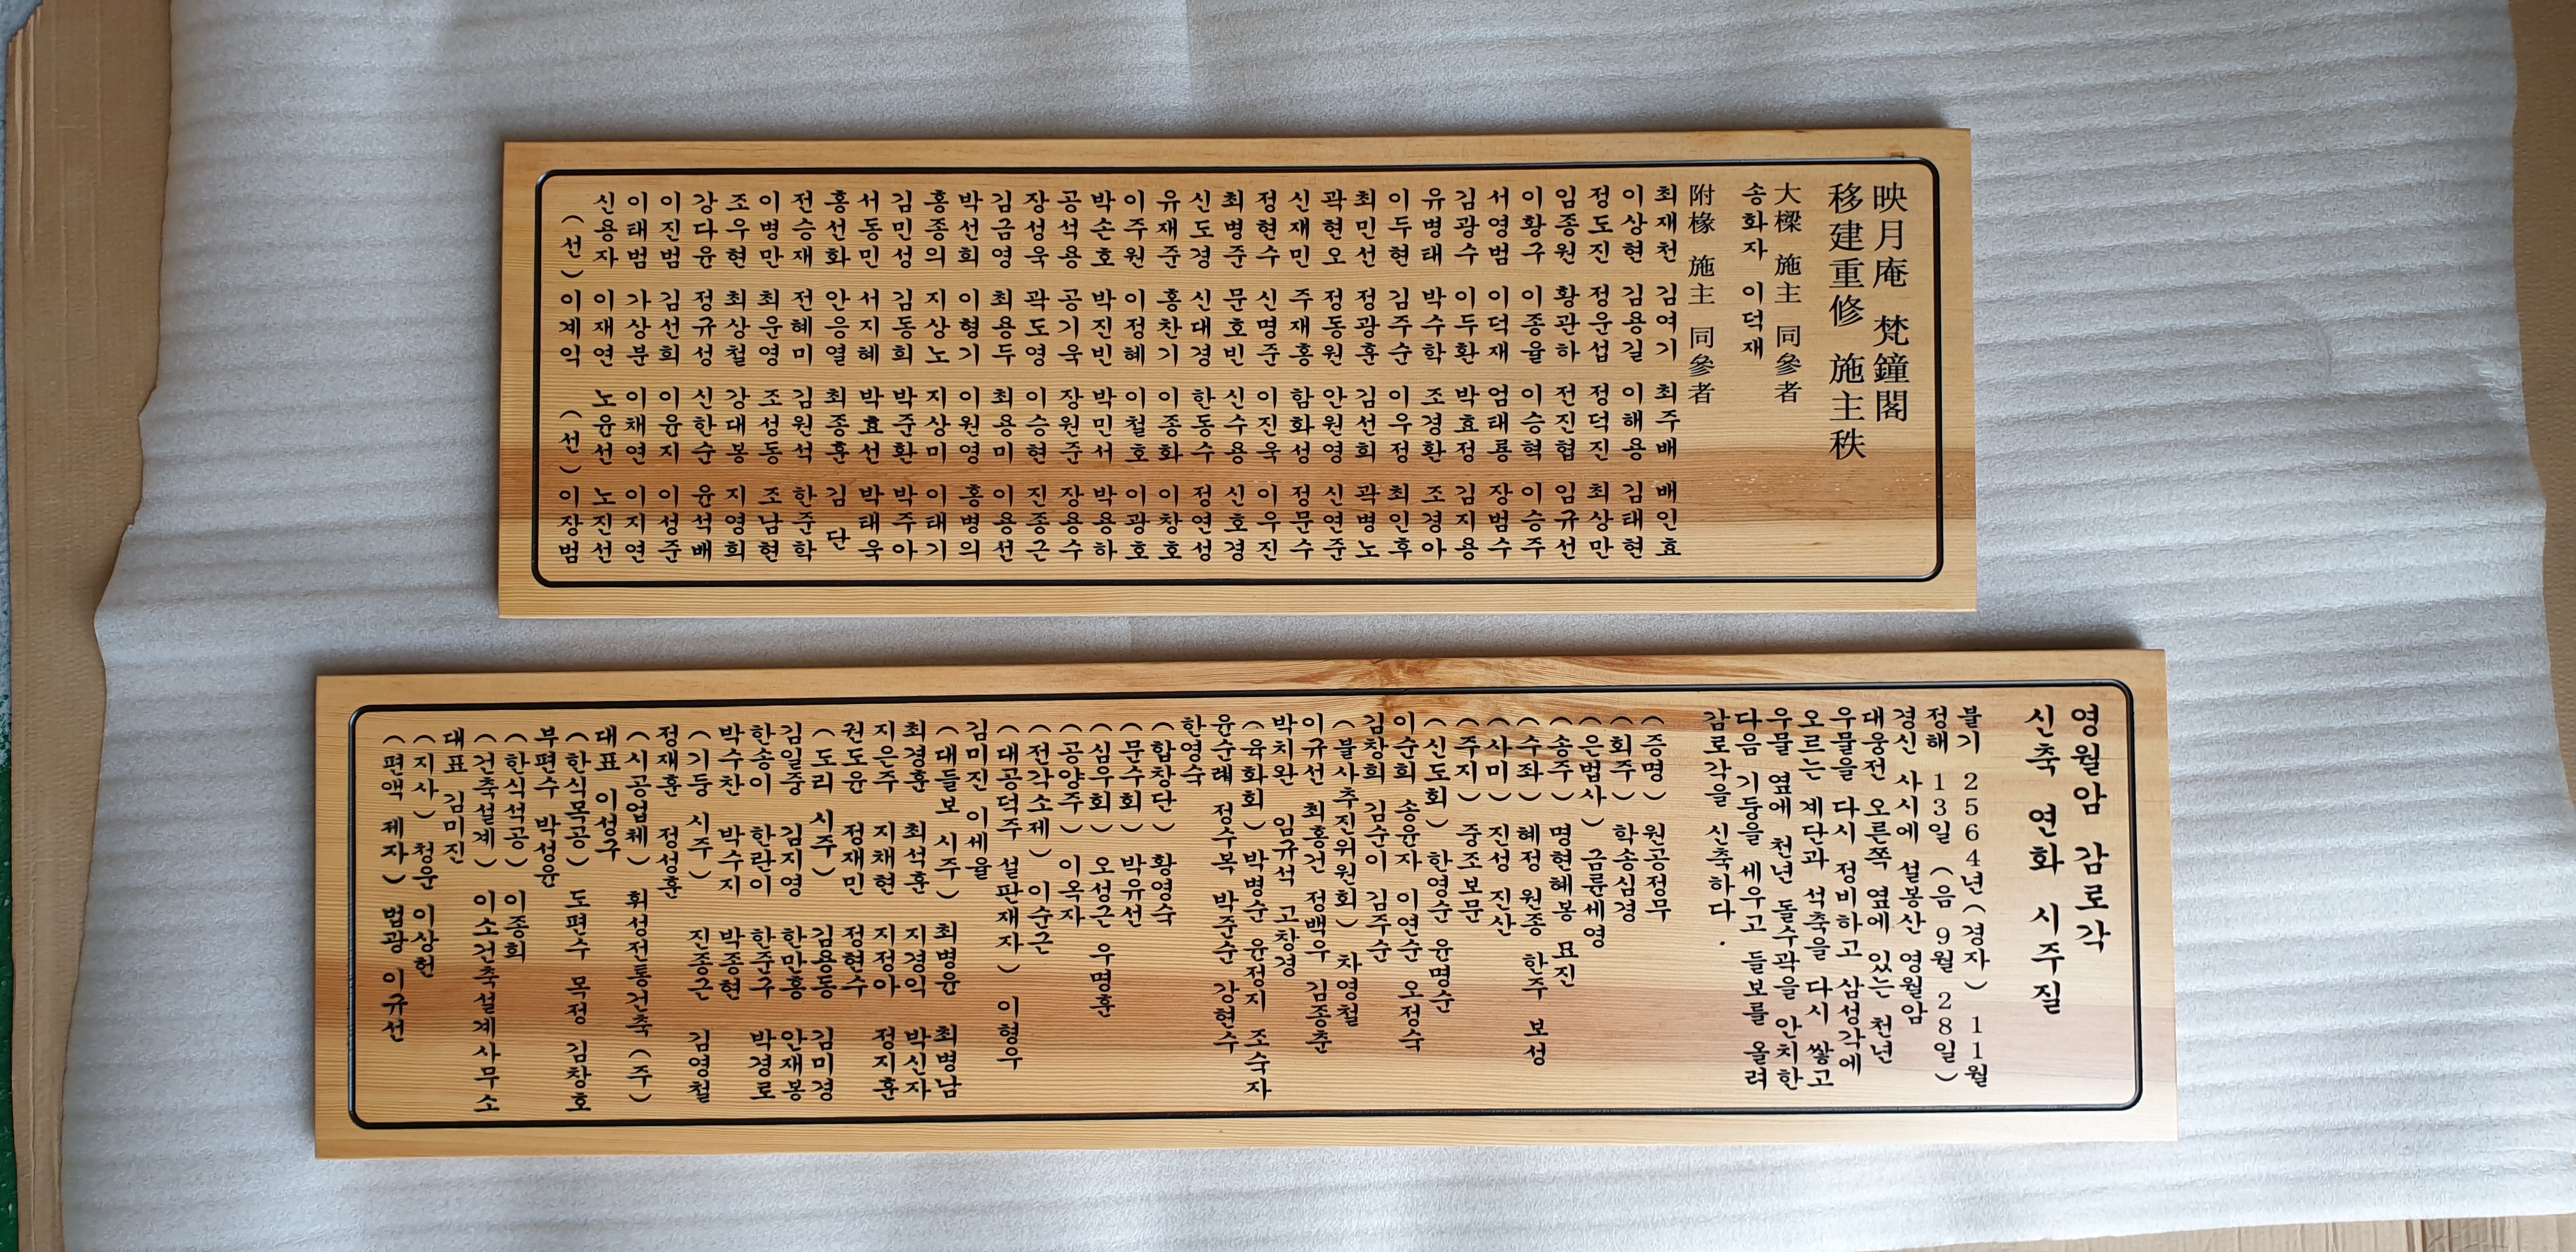 映月庵 梵鐘閣
移建重修 施主秩
大樑 施主 同參者
송화자 이덕재
附椽 施主 同參者
최재천 김여기 최주배 배인효
이상현 김용길 이해용 김태현
정도진 정운섭 정덕진 최상만
임종원 황관하 전진협 임규선
이황구 이종율 이승혁 이승주
서영범 이덕재 엄태룡 장범수
김광수 이두환 박효정 김지용
유병태 박수학 조경환 조경아
이두현 김주순 이우정 최인후
최민선 정광훈 김선희 곽병노
곽현오 정동원 안원영 신연준
신재민 주재홍 함화성 정문수
정현수 신명준 이진욱 이우진
최병준 문호빈 신수용 신호경
신도경 신대경 한동수 정연성
유재준 홍찬기 이종화 이창호
이주원 이정혜 이철호 이광호
박손호 박진빈 박민서 박용하
공석용 공기욱 장원준 장용수
장성욱 곽도영 이승현 진종근
김금영 최용두 최용미 이용선
박선희 이형기 이원영 홍병의
홍종의 지상노 지상미 이태기
김민성 김동희 박준환 박주아
서동민 서지혜 박효선 박태욱
홍선화 안응열 최종훈 김 단
전승재 전혜미 김원석 한준학
이병만 최운영 조성동 조남현
조우현 최상철 강대봉 지영희
강다윤 정규성 신한순 윤석배
이진범 김선희 이윤지 이성준
이태범 가상분 이채연 이지연
신용자 이재연 노윤선 노진선
(선) 이계익 (선) 이장범
영월암 감로각
신축 연화 시주질
불기 2564년(경자) 11월
정해 13일 (음 9월 28일)
경신 사시에 설봉산 영월암
대웅전 오른쪽 옆에 있는 천년
우물을 다시 정비하고 삼성각에
오르는 계단과 석축을 다시 쌓고
우물 옆에 천년 돌수곽을 안치한
다음 기둥을 세우고 들보를 올려
감로각을 신축하다.
(증명) 원공정무
(회주) 학송심경
(은법사) 금륜세영
(송주) 명현혜봉 묘진
(수좌) 혜정 원종 한주 보성
(사미) 진성 진산
(주지) 중조보문
(신도회) 한영순 윤명순
이순희 송윤자 이연순 오정숙
김창희 김순이 김주순
(불사추진위원회) 차영철
이규선 최홍건 정백우 김종춘
박치완 임규석 고창경
(육화회) 박병순 윤정지 조숙자
윤순례 정수복 박준순 강현수
한영숙
(합창단) 황영숙
(문수회) 박유선
(심우회) 오성근 우명훈
(공양주) 이옥자
(전각소제) 이순근
(대공덕주 설판재자) 이형우
김미진 이세율
(대들보 시주) 최병윤 최병남
최경훈 최석훈 지경익 박신자
지은주 지채현 지정아 정지훈
권도윤 정재민 정현수
(도리 시주) 김용동 김미경
김일중 김지영 한만홍 안재봉
한송이 한란이 한준구 박경로
박수찬 박수지 박종현
(기둥 시주) 진종근 김영철
정재훈 정성훈
(시공업체) 휘성전통건축(주)
대표 이성구
(한식목공) 도편수 목정 김창호
부편수 박성윤
(한식석공) 이종희
(건축설계) 이소건축설계사무소
대표 김미진
(지사) 청운 이상헌
(편액 제자) 법광 이규선